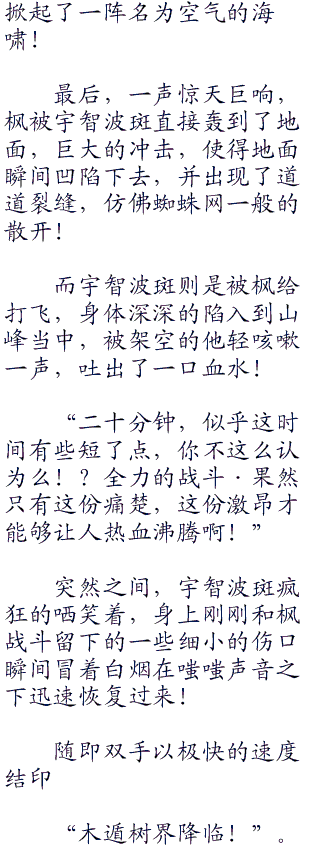 掀起了一阵名为空气的海
啸！
最后，一声惊天巨响，
枫被宇智波斑直接轰到了地
面，巨大的冲击，使得地面
瞬间凹陷下去，并出现了道
道裂缝，仿佛蜘蛛网一般的
散开！
而宇智波斑则是被枫给
打飞，身体深深的陷入到山
峰当中，被架空的他轻咳嗽
一声，吐出了一口血水！
“二十分钟，似乎这时
间有些短了点，你不这么认
为么！？全力的战斗·果然
只有这份痛楚，这份激昂才
能够让人热血沸腾啊！”
突然之间，宇智波斑疯
狂的哂笑着，身上刚刚和枫
战斗留下的一些细小的伤口
瞬间冒着白烟在嗤嗤声音之
下迅速恢复过来！
随即双手以极快的速度
结印
“木遁树界降临！”。